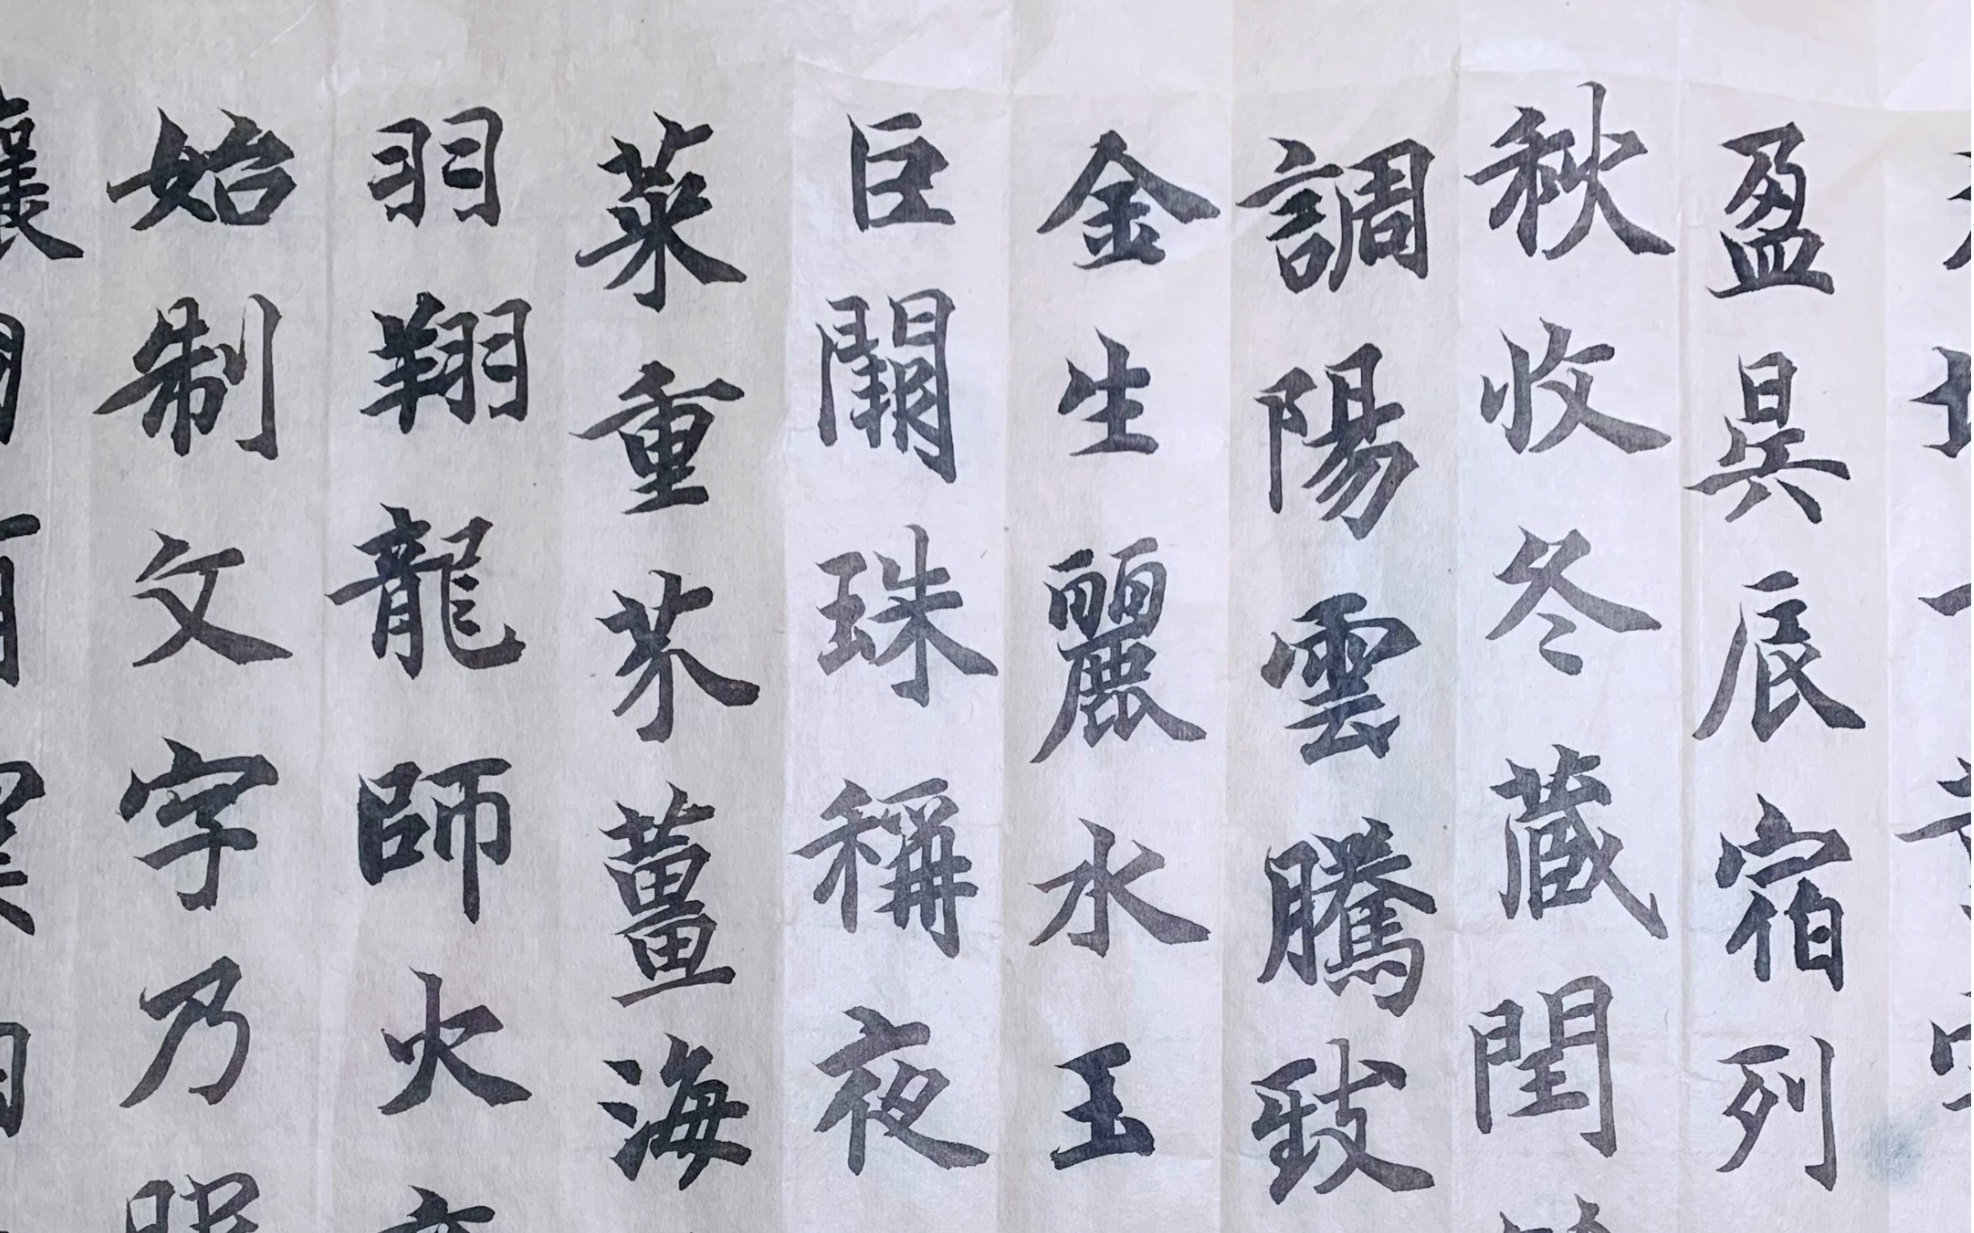 盈昃辰宿列
秋收冬藏閏
調陽雲騰致
金生麗水玉
巨闕珠稱夜
菜重芥薑海
羽翔龍師火
始制文字乃